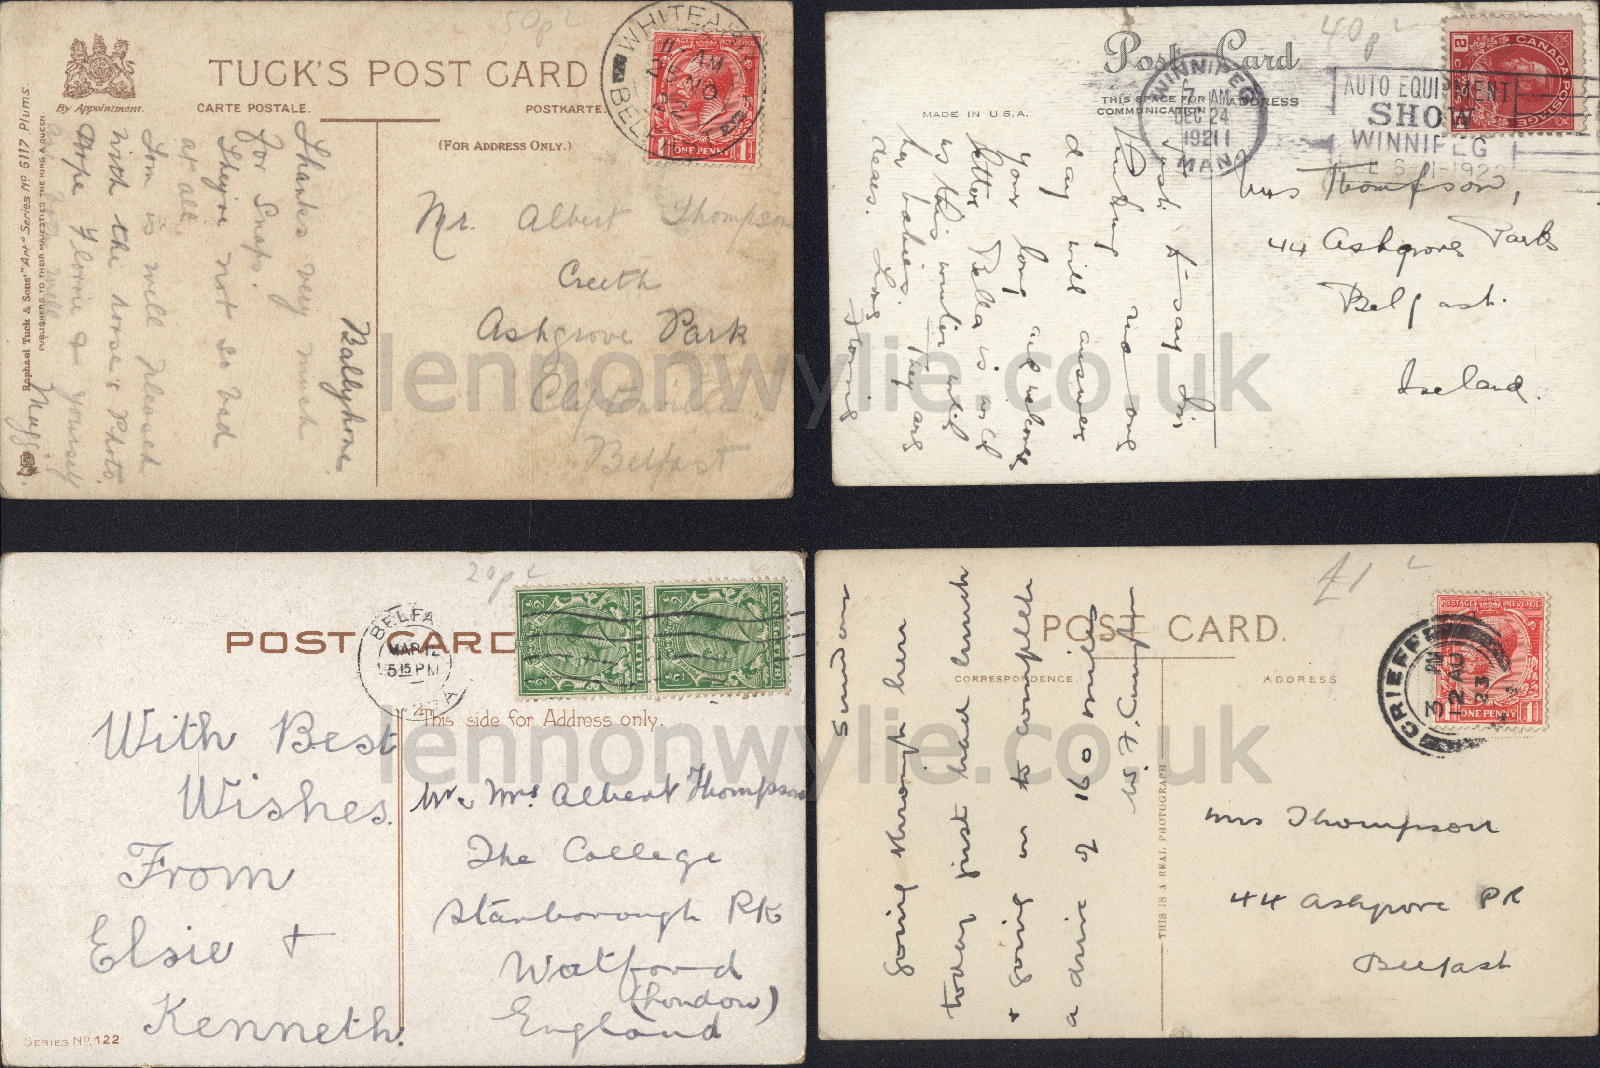 50p
By Appointment.
TUCK'S POST CARD
CARTE POSTALE.
POSTKARTE.
(FOR ADDRESS ONLY.)
WHITEABBEY
11 AM
25 NO
BELFAST
POSTAGE REVENUE
ONE PENNY
Raphael Tuck & Sons' "Art" Series No 6117 Plums.
PUBLISHERS TO THEIR MAJESTIES THE KING & QUEEN.
Ballyhone
Thanks very much
for Snaps.
They're not so bad
at all.
Tom is well pleased
with the horse's Photo.
Hope Florrie & yourself
well
Maggie.
Mr. Albert Thompson
Creeth
Ashgrove Park
Cliftonville.
Belfast
40p
Post Card
THIS SPACE FOR COMMUNICATION
ADDRESS
MADE IN U.S.A.
WINNIPEG
7 AM
DEC 24
1921
MAN.
AUTO EQUIPMENT
SHOW
WINNIPEG
CANADA POSTAGE
2 CENTS
Just to say I'm
thinking
day will answer
your long and welcome
letter Bella is well
is this winter with
her babies. They are
dears. Love
Florrie
Mrs Thompson,
44 Ashgrove Park
Belfast.
Ireland.
20p
POST CARD
BELFAST
MAR 12
5 15 PM
HALFPENNY
This side for Address only.
With Best
Wishes.
From
Elsie +
Kenneth.
SERIES No. 122
Mr & Mrs Albert Thompson
The College
Stanborough Pk
Watford
(London)
England
£1
POST CARD.
CORRESPONDENCE.
ADDRESS
THIS IS A REAL PHOTOGRAPH
CRIEFF
12 AU
23
POSTAGE REVENUE
ONE PENNY
Sunday
going through here
today just had lunch
+ going on to complete
a drive of 160 miles
Mrs Thompson
44 Ashgrove Pk
Belfast
lennonwylie.co.uk
lennonwylie.co.uk